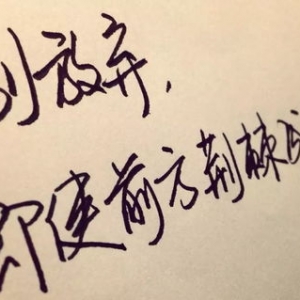 别放弃，
即使前方荆棘